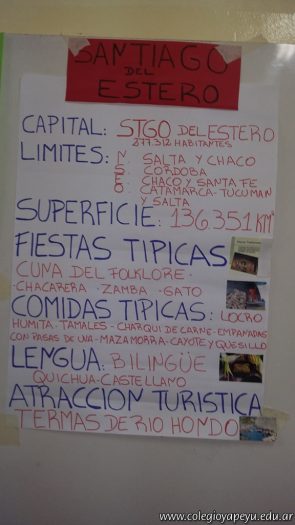 SANTIAGO
DEL
ESTERO
CAPITAL: STGO DEL ESTERO
877.312 HABITANTES
LIMITES: N. SALTA Y CHACO
S. CORDOBA
E. CHACO Y SANTA FE
O. CATAMARCA-TUCUMAN
Y SALTA
SUPERFICIE: 136.351 KM²
FIESTAS TIPICAS
CUNA DEL FOLKLORE·
·CHACARERA ·ZAMBA ·GATO
COMIDAS TIPICAS: LOCRO
HUMITA-TAMALES-CHARQUI DE CARNE-EMPANADAS
CON PASAS DE UVA-MAZAMORRA-CAYOTE Y QUESILLO
LENGUA: BILINGÜE
QUICHUA-CASTELLANO
ATRACCION TURISTICA
TERMAS DE RIO HONDO
www.colegioyapeyu.edu.ar